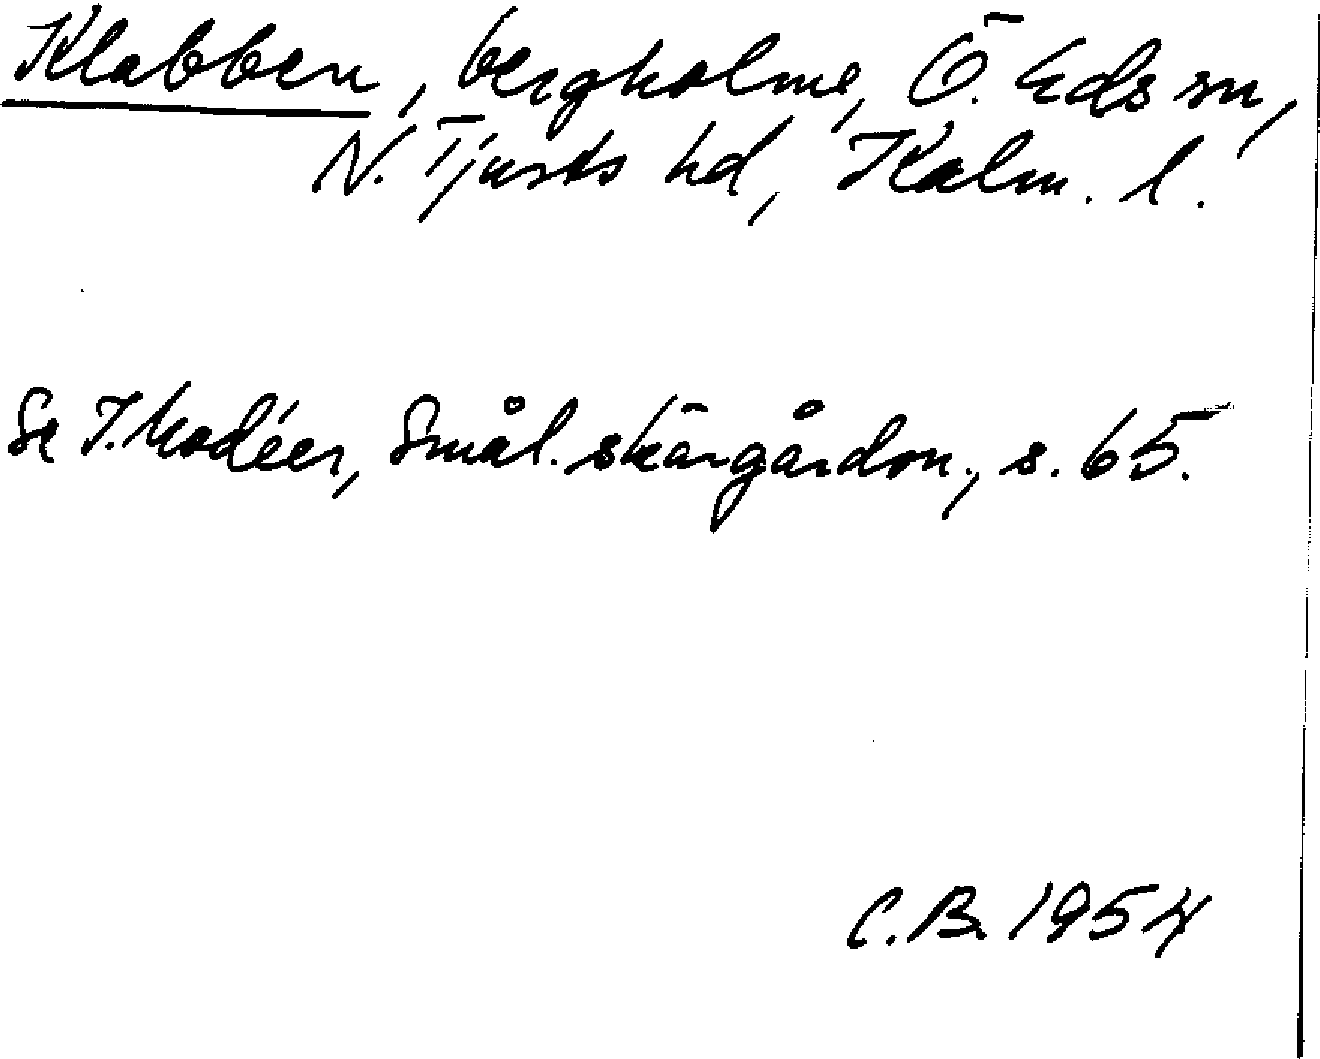 Klabben, bergholme, Ö. Eds sn,
N. Tjusts hd, Kalm. l.
Se I. Modéer, Smål. skärgårdsn., s. 65.
C.B. 1954